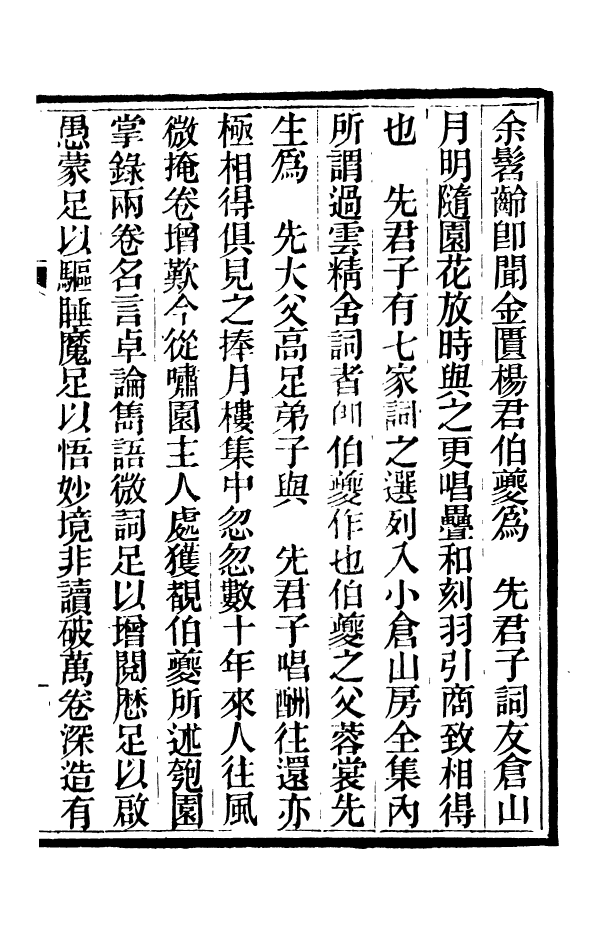 余髫齡卽聞金匱楊君伯夔爲　先君子詞友倉山
月明隨園花放時與之更唱疊和刻羽引商致相得
也　先君子有七家詞之選列入小倉山房全集內
所謂過雲精舍詞者卽伯夔作也伯夔之父蓉裳先
生爲　先大父高足弟子與　先君子唱酬往還亦
極相得俱見之捧月樓集中忽忽數十年來人往風
微掩卷增歎今從嘯園主人處獲覩伯夔所述匏園
掌錄兩卷名言卓論雋語微詞足以增閱歷足以啟
愚蒙足以驅睡魔足以悟妙境非讀破萬卷深造有